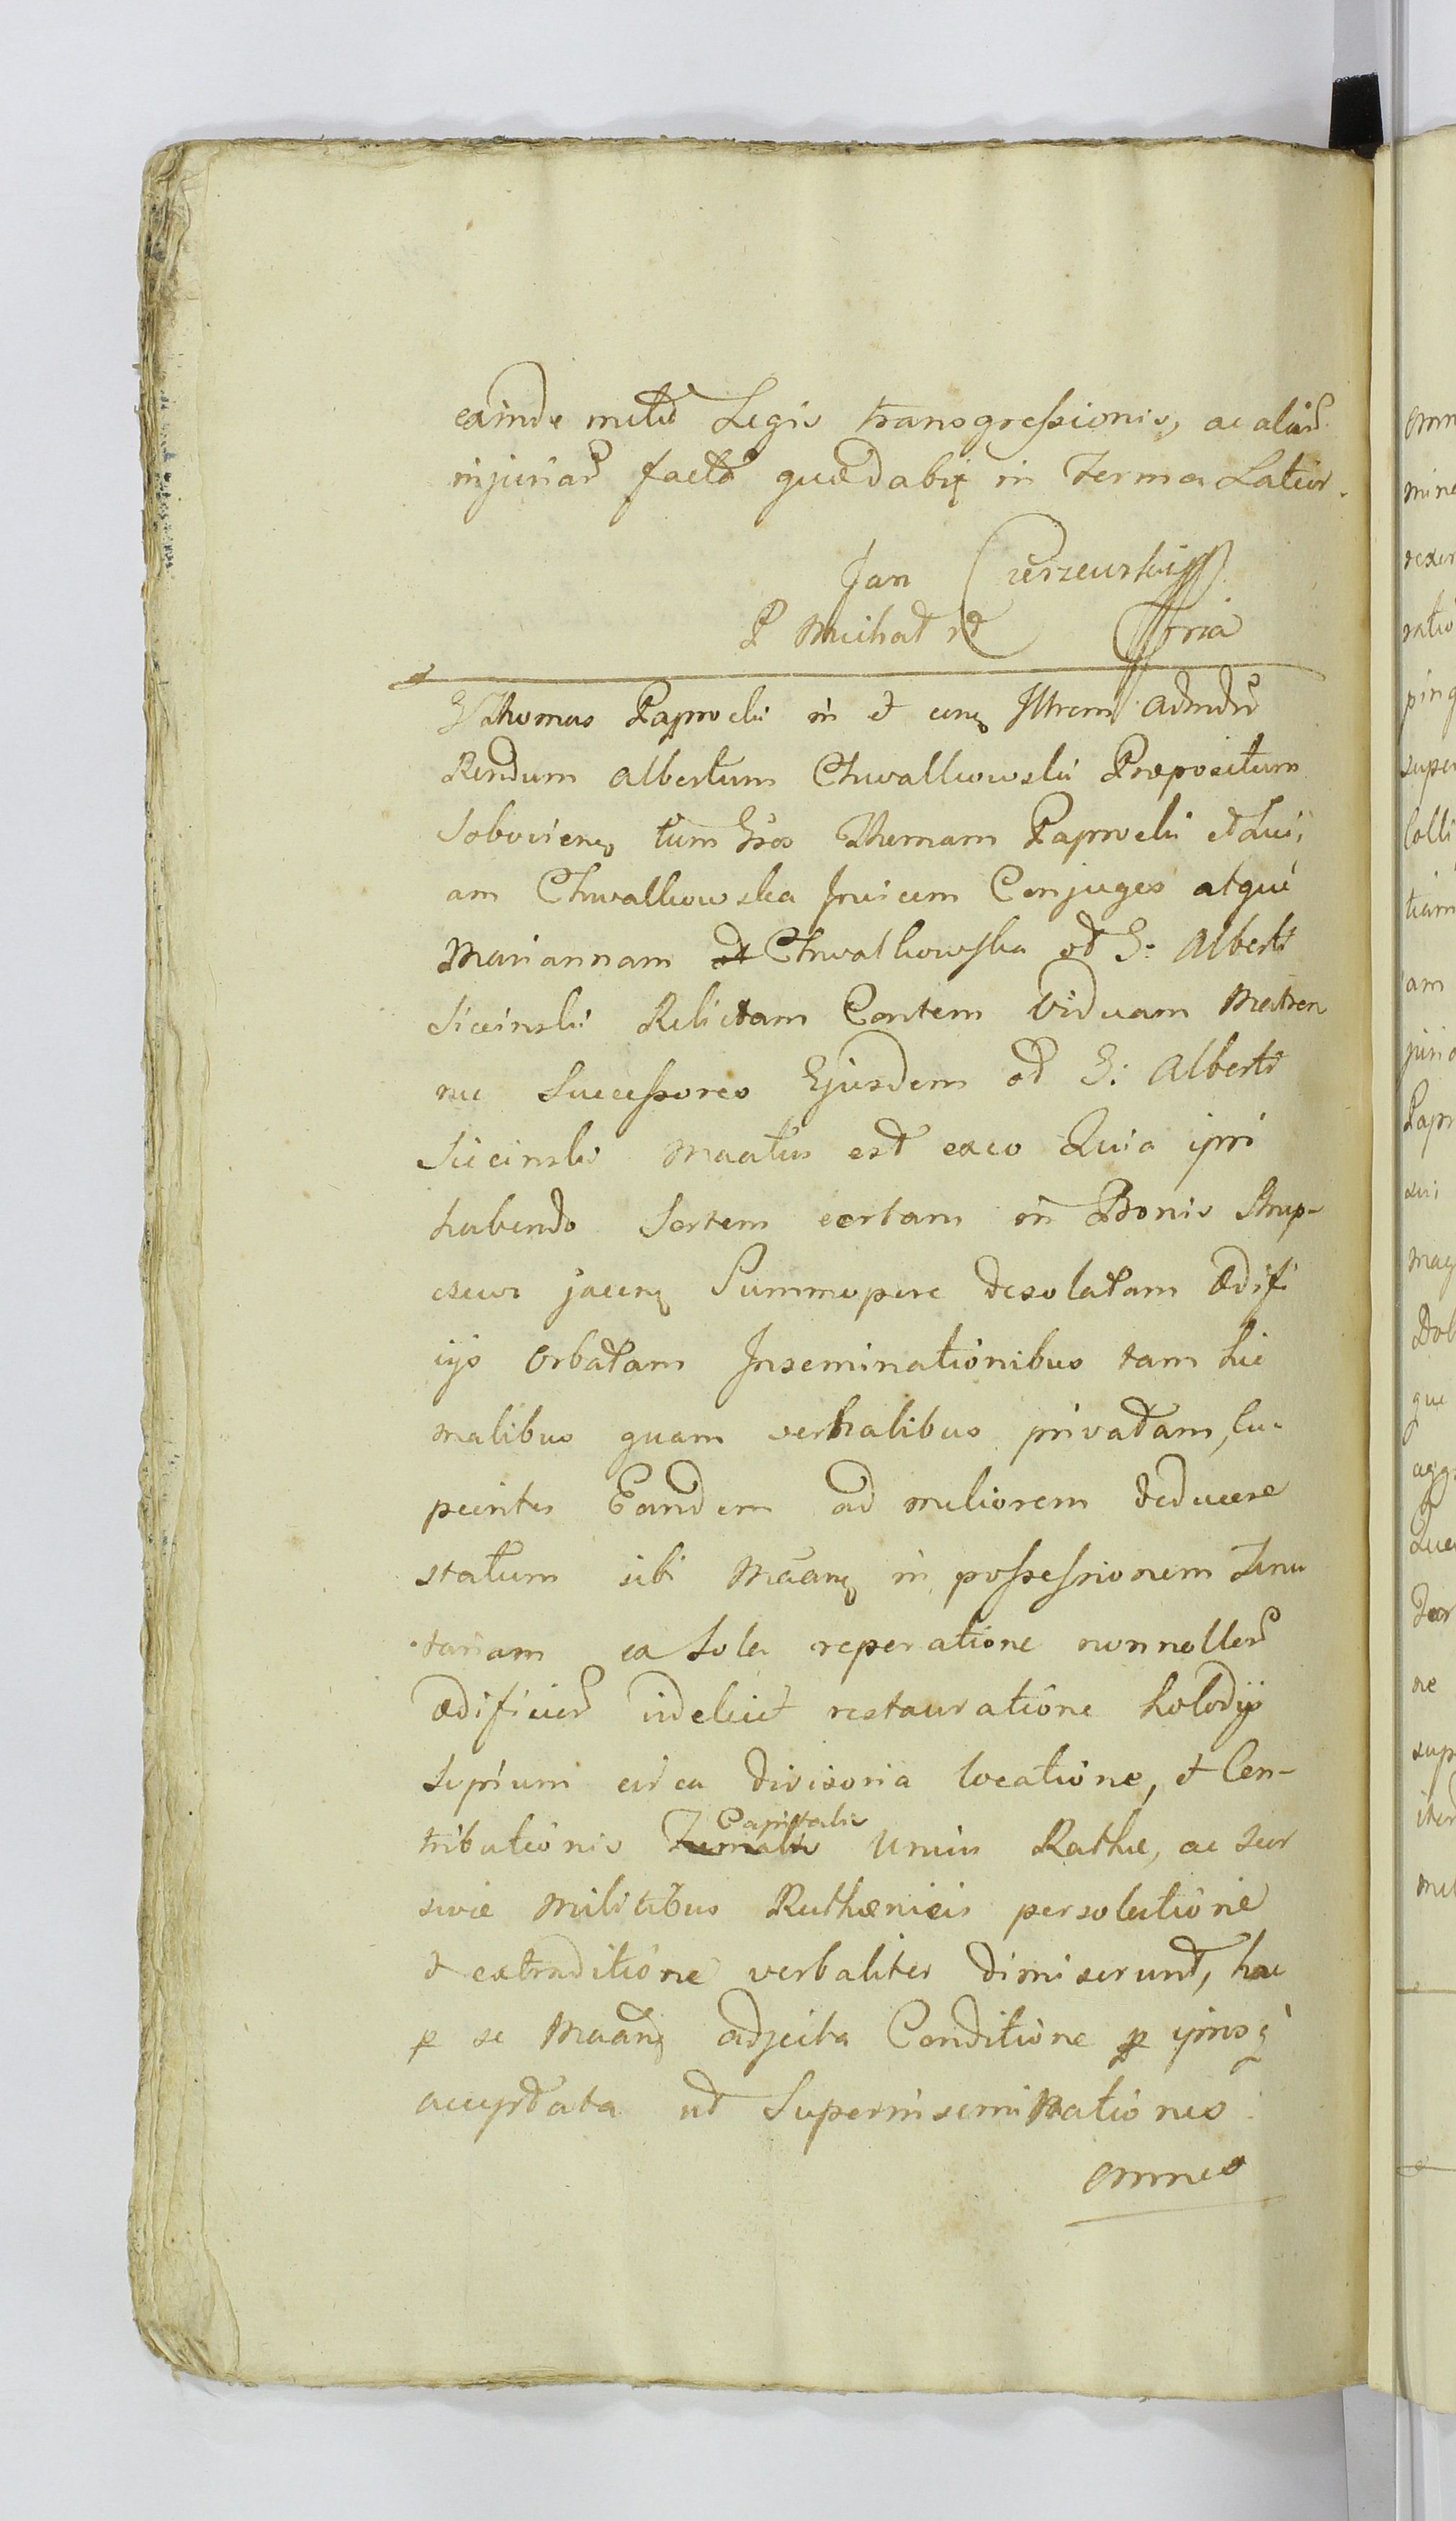 exinde metu Legis transgressionis, ac aliar
injuriar facta quædabit in Term Latior.
Jan
P Michał
G Thomas Paprocki in et con Illrem Adndu
Rendum Albertum Chwalkowski Præpositum
Sobocien tum Gsos Thomam Paprocki et Luci
am Chwalkowska Invicem Conjuges atque
Mariannam Chwalkowska od G: Alberti
Sicinski Relictam Contem Viduam Matren
nec Successores Ejusdem od G: Alberti
Sicinski Maatus est ex eo Quia ipsi
habendo Sortem certam in Bonis Strup-
czewo jacen Summopere desolatam ædifi
ijs Orbatam Inseminationibus tam hie
malibus quam vernalibus privatam, cu-
pientes Eandem ad meliorem deducere
statum sibi Maan in possessionem Tenu
tariam ex sola reperatione nonnullor
ædificior videlicet restauratione
Sepium circa divisoria locatione, et Con-
tributionis Capitalis unius Rathæ, ac
Militibus Ruthenicis persolutione
et extraditione verbaliter dimiserunt, hac
p se Maan adjecta Conditione p ipsos q
acceptata ut Superinseminationes
omnes